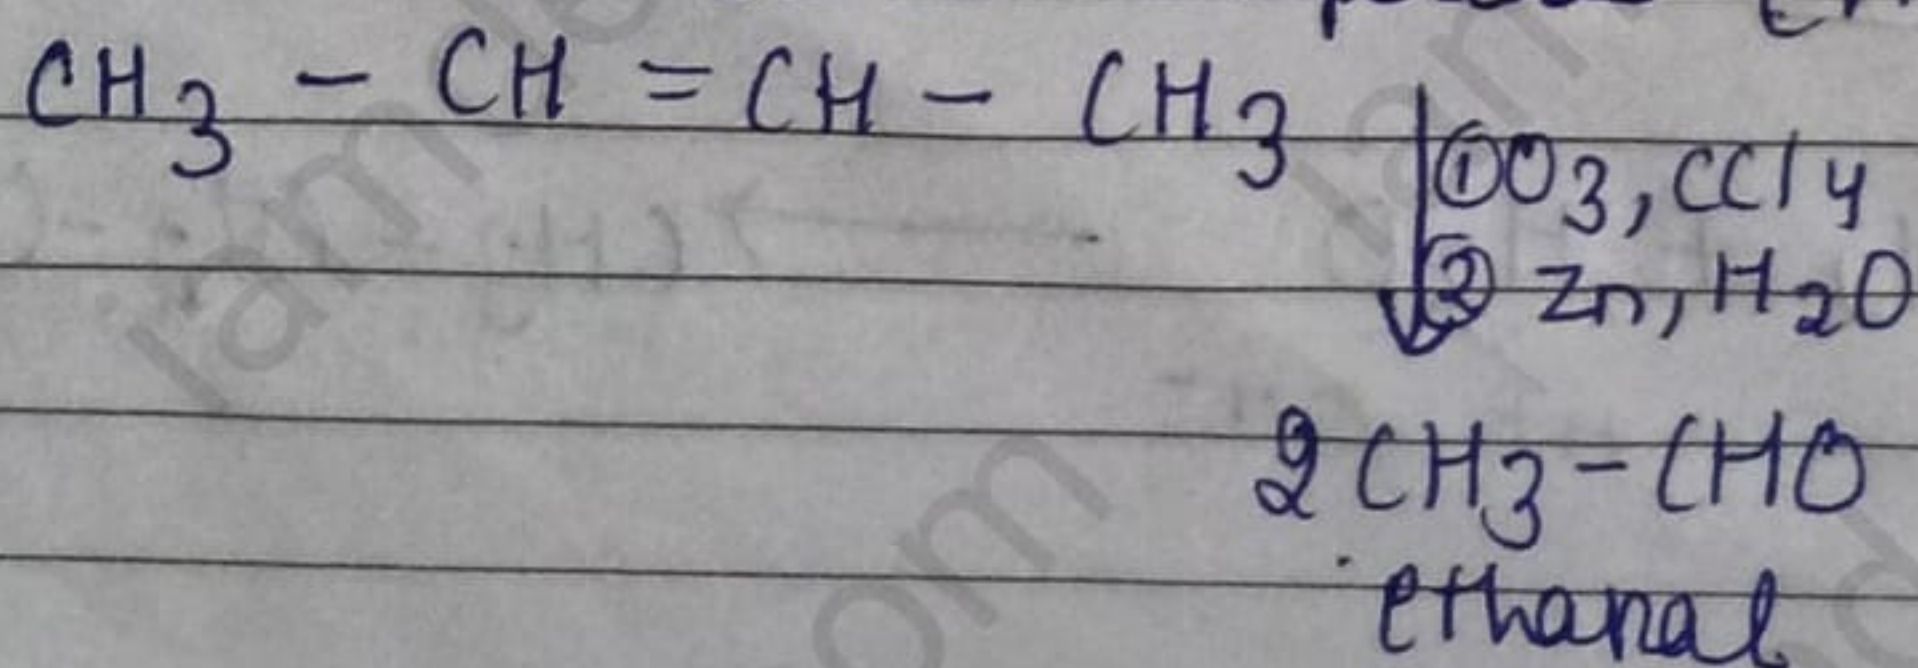 CH3 - CH = CH - CH3
① O3, CCl4
② Zn, H2O
2 CH3 - CHO
ethanal